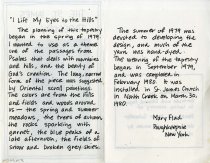 "I Lift My Eyes to the Hills"
The planning of this tapestry
began in the spring of 1979.
I wanted to use as a theme
one of the passages from
Psalms that deals with mountains
and hills, and the beauty of
God's creation. The long, narrow
form of the piece was suggested
by Oriental scroll paintings.
The colors are from the hills
and fields and woods around
us — the spring and summer
meadows, the trees of autumn
the rocks sparkling with
garnets, the blue peaks of a
late afternoon, the fields of
snow and broken grey skies.
The summer of 1979 was
devoted to developing the
design, and much of the
yarn was hand-dyed.
The weaving of the tapestry
began in September 1979,
and was completed in
February 1980. It was
installed in St. James Church
in North Creek on March 30,
1980.
Mary
Poughkeepsie
New York